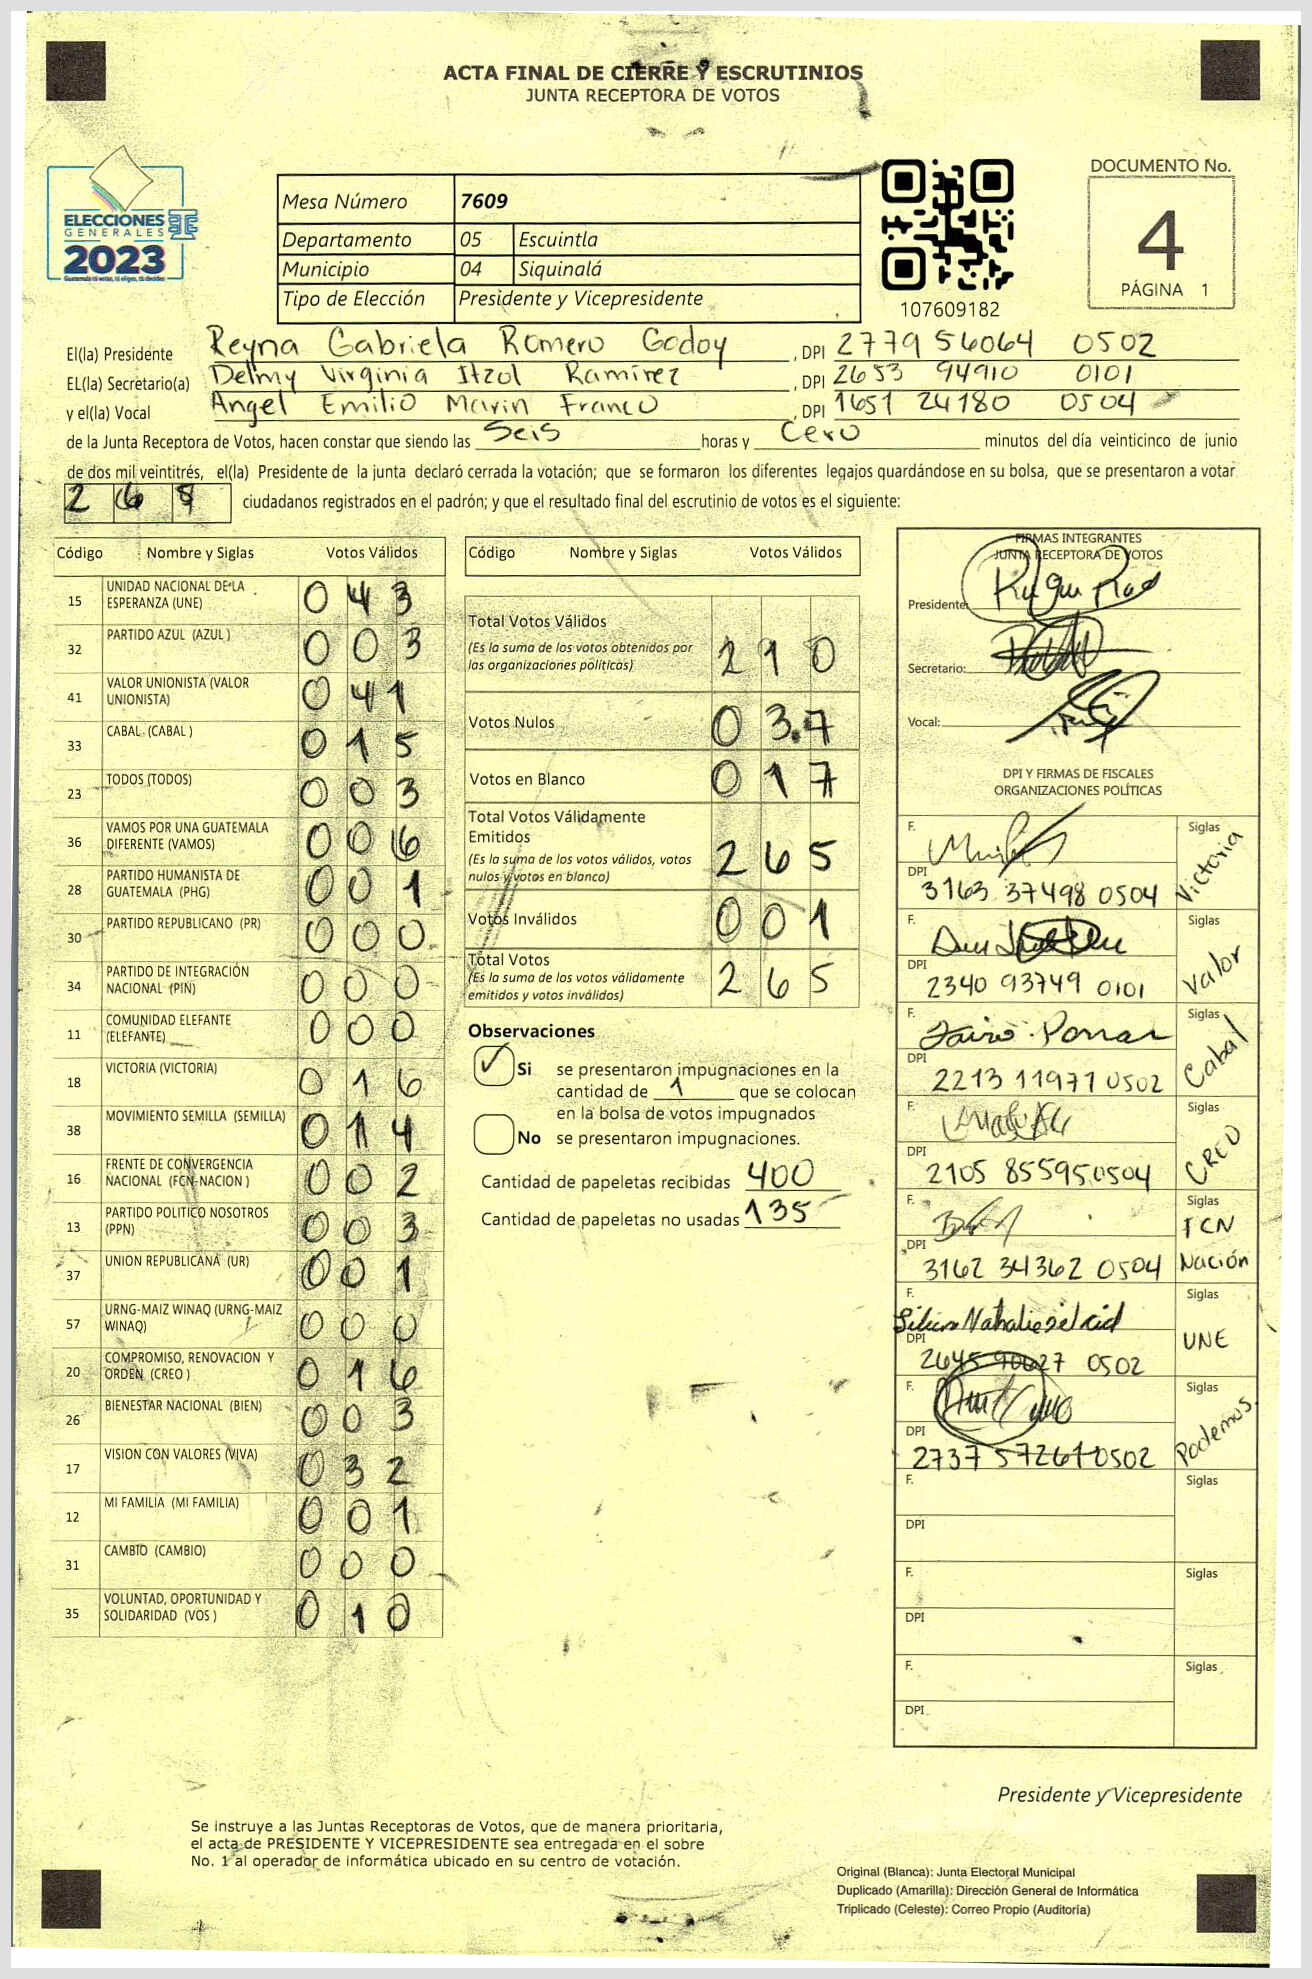 ACTA FINAL DE CIERRE Y ESCRUTINIOS
JUNTA RECEPTORA DE VOTOS
ELECCIONES
GENERALES
2023
Mesa Número 7609
Departamento 05 Escuintla
Municipio 04 Siquinalá
Tipo de Elección Presidente y Vicepresidente
107609182
DOCUMENTO No.
4
PÁGINA 1
El(la) Presidente Reyna Gabriela Romero Godoy , DPI 2779 56064 0502
EL(la) Secretario(a) Delmy Virginia Itzol Ramírez , DPI 2653 94910 0101
y el(la) Vocal Angel Emilio Marin Franco , DPI 1651 24180 0504
de la Junta Receptora de Votos, hacen constar que siendo las Seis horas y Cero minutos del día veinticinco de junio
de dos mil veintitrés, el(la) Presidente de la junta declaró cerrada la votación; que se formaron los diferentes legajos quardándose en su bolsa, que se presentaron a votar
ciudadanos registrados en el padrón; y que el resultado final del escrutinio de votos es el siguiente:
Código Nombre y Siglas Votos Válidos
15 UNIDAD NACIONAL DE LA ESPERANZA (UNE) 0 4 3
32 PARTIDO AZUL (AZUL ) 0 0 3
41 VALOR UNIONISTA (VALOR UNIONISTA) 0 4 1
33 CABAL (CABAL ) 0 1 5
23 TODOS (TODOS) 0 0 3
36 VAMOS POR UNA GUATEMALA DIFERENTE (VAMOS) 0 0 6
28 PARTIDO HUMANISTA DE GUATEMALA (PHG) 0 0 1
30 PARTIDO REPUBLICANO (PR) 0 0 0
34 PARTIDO DE INTEGRACIÓN NACIONAL (PIN) 0 0 0
11 COMUNIDAD ELEFANTE (ELEFANTE) 0 0 0
18 VICTORIA (VICTORIA) 0 1 6
38 MOVIMIENTO SEMILLA (SEMILLA) 0 1 4
16 FRENTE DE CONVERGENCIA NACIONAL (FCN-NACION ) 0 0 2
13 PARTIDO POLITICO NOSOTROS (PPN) 0 0 3
37 UNION REPUBLICANA (UR) 0 0 1
57 URNG-MAIZ WINAQ (URNG-MAIZ WINAQ) 0 0 0
20 COMPROMISO, RENOVACION Y ORDEN (CREO ) 0 1 6
26 BIENESTAR NACIONAL (BIEN) 0 0 3
17 VISION CON VALORES (VIVA) 0 3 2
12 MI FAMILIA (MI FAMILIA) 0 0 1
31 CAMBIO (CAMBIO) 0 0 0
35 VOLUNTAD, OPORTUNIDAD Y SOLIDARIDAD (VOS ) 0 1 0
Código Nombre y Siglas Votos Válidos
Total Votos Válidos
(Es la suma de los votos obtenidos por
las organizaciones políticas) 2 1 0
Votos Nulos 0 3 7
Votos en Blanco 0 1 7
Total Votos Válidamente
Emitidos
(Es la suma de los votos válidos, votos
nulos y votos en blanco) 2 6 5
Votos Inválidos 0 0 1
Total Votos
(Es la suma de los votos válidamente
emitidos y votos inválidos) 2 6 5
Observaciones
Si se presentaron impugnaciones en la
cantidad de 1 que se colocan
en la bolsa de votos impugnados
No se presentaron impugnaciones.
Cantidad de papeletas recibidas 400
Cantidad de papeletas no usadas 135
FIRMAS INTEGRANTES
JUNTA RECEPTORA DE VOTOS
Presidente:
Secretario:
Vocal:
DPI Y FIRMAS DE FISCALES
ORGANIZACIONES POLÍTICAS
F. Siglas Victoria
DPI 3163 37498 0504
F. Siglas Valor
DPI 2340 93749 0101
F. Siglas Cabal
DPI 2213 11971 0502
F. Siglas CREO
DPI 2105 85595 0504
F. Siglas FCN Nación
DPI 3162 34362 0504
F. Siglas UNE
DPI 0502
F. Siglas Podemos
DPI 2737 57261 0502
F. Siglas
DPI
F. Siglas
DPI
F. Siglas
DPI
Presidente y Vicepresidente
Se instruye a las Juntas Receptoras de Votos, que de manera prioritaria,
el acta de PRESIDENTE Y VICEPRESIDENTE sea entregada en el sobre
No. 1 al operador de informática ubicado en su centro de votación.
Original (Blanca): Junta Electoral Municipal
Duplicado (Amarilla): Dirección General de Informática
Triplicado (Celeste): Correo Propio (Auditoría)